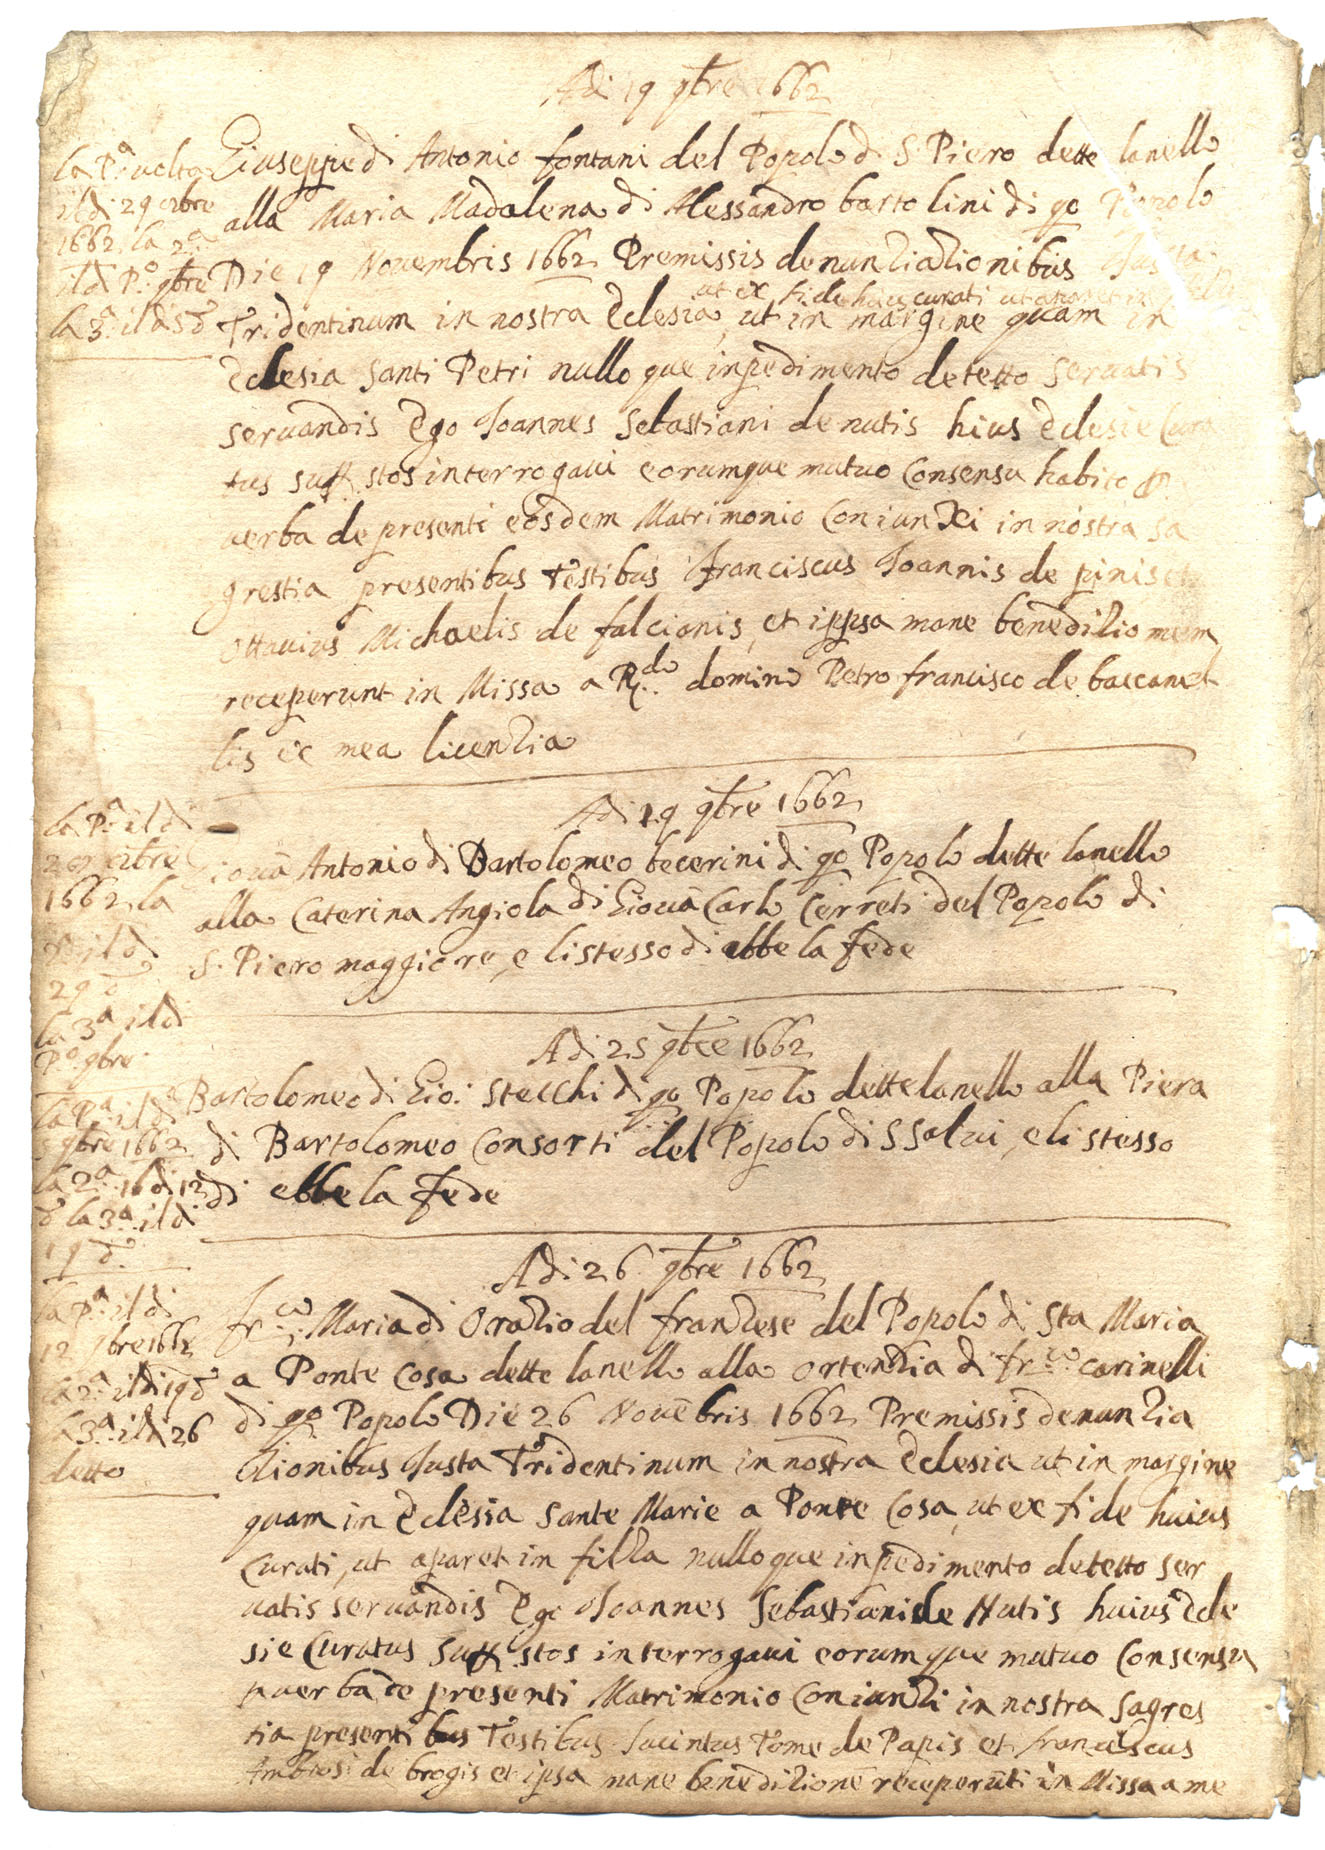 Adi 19 9bre 1662
la Pa uolta
il di 29 8bre
1662 la 2a
il di Po 9bre
la 3a il di 5 do
Giuseppe di Antonio fontani del Popolo di S Piero dette lanello
alla Maria Madalena di Alessandro bartolini di qo Popolo
Die 19 Nouembris 1662 Premissis denuntiationibus Iusta
ut ex fide huius curati ut aparet in filza
Tridentinum in nostra Eclesia, ut in margine quam in
Eclesia Santi Petri nulloque inpedimento detetto seruatis
seruandis Ego Ioannes Sebastiani de nutis hius Eclesie Cura
tus suff.stos interrogaui eorumque mutuo Consensu habito p
uerba de presenti eosdem Matrimonio Coniunxi in nostra sa
grestia presentibus testibus Franciscus Ioannis de pinis et
Ottauius Michaelis de falcionis, et ippsa mane beneditionem
receperunt in Missa a R.do domino Petro francisco de baccanel
lis ex mea licentia
Adi 19 9bre 1662
la Pa il di
29 8bre
1662 la
2a il di
29 do
la 3a il di
Po 9bre
Giouā Antonio di Bartolomeo becerini di qo Popolo dette lanello
alla Caterina Angiola di Giouā Carlo Cerreti del Popolo di
S. Piero maggiore, e listesso di ebbe la fede
Adi 25 9bre 1662
la Pa il di
5 9bre 1662
la 2a il di 12
do la 3a il di
19 do
Bartolomeo di Gio: Stecchi di qo Popolo dette lanello alla Piera
di Bartolomeo Consorti del Popolo di S Salui, e listesso
di ebbe la fede
Adi 26 9bre 1662
la Pa il di
12 9bre 1662
la 2a il di 19 do
la 3a il di 26
detto
Fr.co Maria di Oratio del franzese del Popolo di Sta Maria
a Ponte Cosa dette lanello alla Ortentia di fr.co carinelli
di qo Popolo Die 26 Nouēbris 1662 Premissis denuntia
tionibus Iusta Tridentinum in nostra Eclesia ut in margine
quam in Eclesia Sante Marie a Ponte Cosa, ut ex fide huius
Curati, ut aparet in filza nulloque inpedimento detetto ser
uatis seruandis Ego Ioannes Sebastiani de Nutis huius Ecle
sie Curatus suff.stos interrogaui eorumque mutuo Consensu
p uerba de presenti Matrimonio Coniunxi in nostra Sagres
tia presentibus Testibus Iacintus Tome de Papis et franciscus
Ambrosi de brogis et ipsa mane beneditionē receperūt in Missa a me